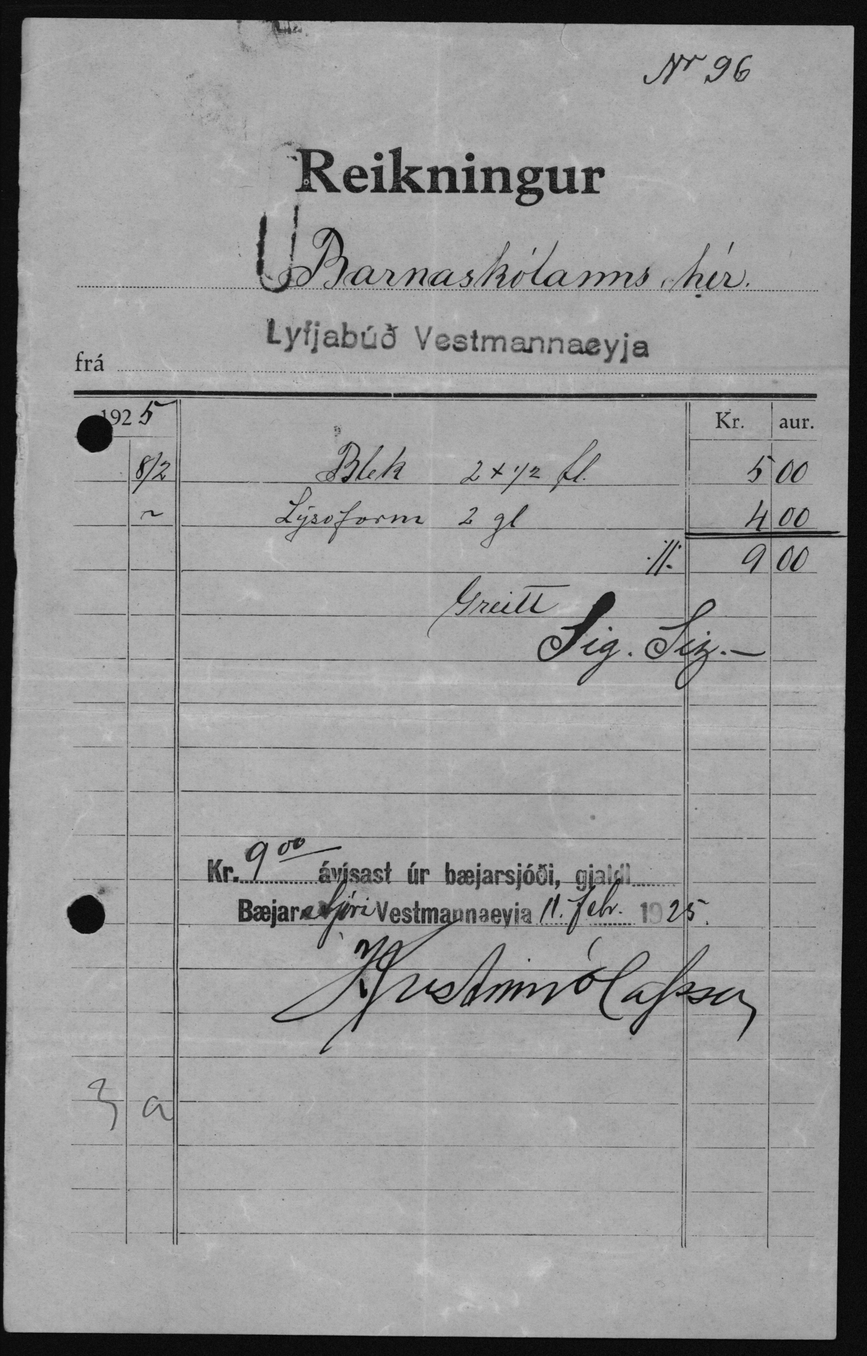 Nr 96
Reikningur
U Barnaskólanns hér.
Lyfjabúð Vestmannaeyja
frá
1925 Kr. aur.
8/2 Blek 2 + 1/2 fl. 5 00
~ Lýsoform 2 gl 4 00
9 00
Greitt
Sig. Sig.—
Kr. 9 00 ávísast úr bæjarsjóði, gjaldi
Bæjarstjóri Vestmannaeyja 11. febr. 1925.
Kristinn Ólafsson
3 a